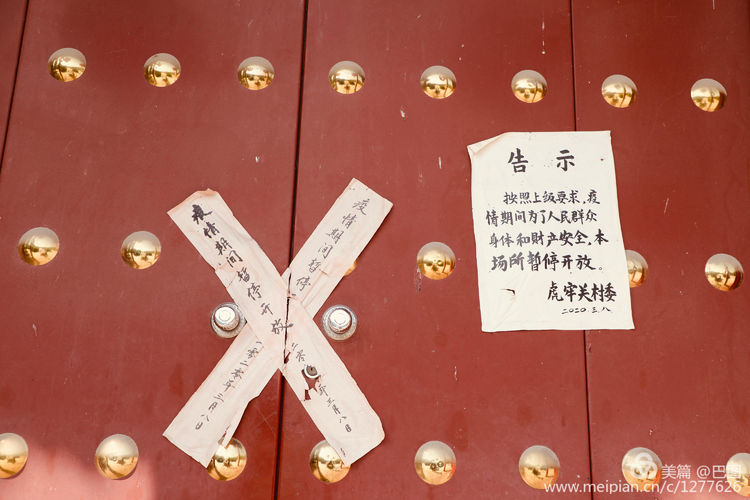 告示
按照上级要求,疫
情期间为了人民群众
身体和财产安全,本
场所暂停开放。
虎牢关村委
2020.3.八
疫情期间暂停开放
二零二零年三月八日
疫情期间暂停
年三月八日
美篇 @巴图
www.meipian.cn/c/1277626